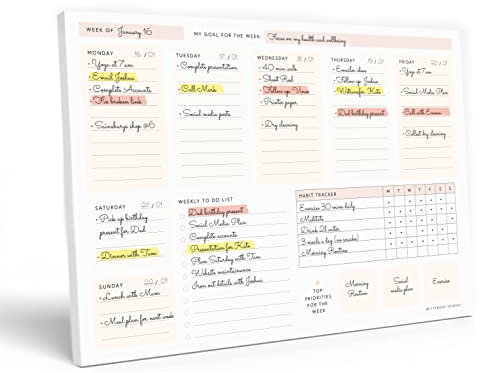 WEEK OF January 16
MY GOAL FOR THE WEEK: Focus on my health and wellbeing
MONDAY 16 / 01
• Yoga at 7am
• Email Joshua
• Complete Accounts
• Fix broken link
• Sainsburys shop @6
TUESDAY 17 / 01
• Complete presentation
• Call Mark
• Social media posts
WEDNESDAY 18 / 01
• 40 min walk
• Shoot Reel
• Follow up Venue
• Printer paper
• Dry cleaning
THURSDAY 19 / 01
• Follow up Joshua
• Wetransfer Kate
• Dad birthday present
FRIDAY 20 / 01
• Yoga at 7am
• Social Media Plan
• Call with Emma
• Collect dry cleaning
SATURDAY 21 / 01
• Pick up birthday
present for Dad
• Dinner with Tom
SUNDAY 22 / 01
• Lunch with Mum
• Meal plan for next week
WEEKLY TO DO LIST
Dad birthday present
Social Media Plan
Complete accounts
Presentation for Kate
Plan Saturday with Tom
Website maintainance
Iron out details with Joshua
HABIT TRACKER M T W T F S S
Exercise 30 mins daily
Meditate
Drink 2L water
3 meals a day (no snacks)
Morning Routine
TOP
PRIORITIES
FOR THE
WEEK
Morning
Routine
Social
media plan
Exercise